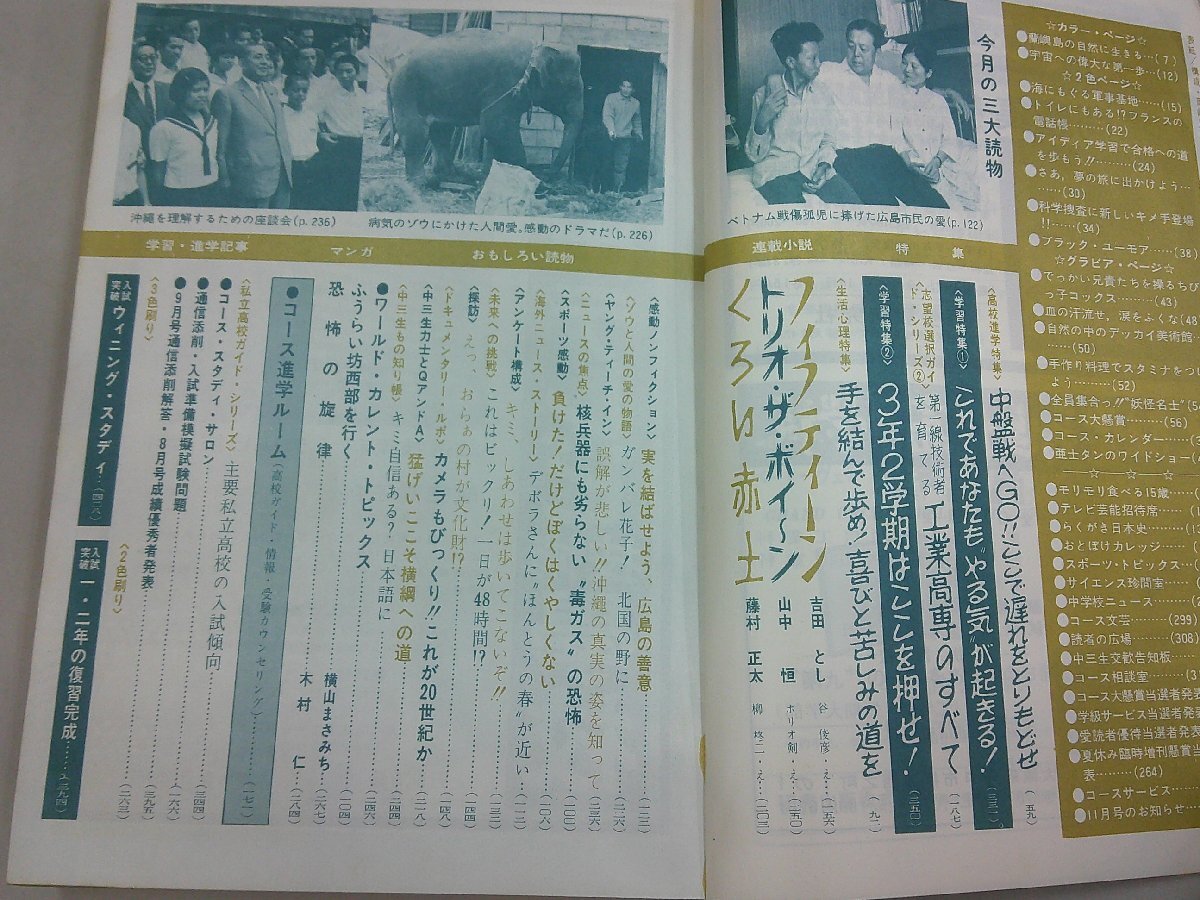 ☆カラー・ページ☆
●蘭嶼島の自然に生きる…(7)
●宇宙への偉大な第一歩…(12)
☆2色ページ☆
●海にもぐる軍事基地……(15)
●トイレにもある!?フランスの
電話帳………(22)
●アイディア学習で合格への道
を歩もう!!………(24)
●さあ、夢の旅に出かけよう…
……(30)
●科学捜査に新しいキメ手登場
!!……(34)
●ブラック・ユーモア……(38)
☆グラビア・ページ☆
●でっかい兄貴たちを操るちび
っ子コックス………(43)
●血の汗流せ、涙をふくな(48
●自然の中のデッカイ美術館…
………(50)
●手作り料理でスタミナをつけ
よう………(52)
●全員集合っ!!"妖怪名士"(54
●コース大懸賞………(56)
●コース・カレンダー……(2
●亜土タンのワイドショー(
●モリモリ食べる15歳……
●テレビ芸能招待席………(
●らくがき日本史………(1
●おとぼけカレッジ……(
●スポーツ・トピックス…(
●サイエンス珍問室………
●中学校ニュース………(2
●コース文芸………(299)
●読者の広場………(308)
●中三生交歓告知板………
●コース相談室………(3
●コース大懸賞当選者発表
●学級サービス当選者発表
●愛読者優待当選者発表
●夏休み臨時増刊懸賞当
表………(264)
●コースサービス………
●11月号のお知らせ…
今月の三大読物
ベトナム戦傷孤児に捧げた広島市民の愛(p.122)
特集
〈高校進学特集〉中盤戦へGO!!ここで遅れをとりもどせ(五九)
〈学習特集①〉これであなたも"やる気"が起きる!(三三一)
〈志望校選択ガイド・シリーズ②〉第一線技術者を育てる 工業高専のすべて(一八七)
〈学習特集②〉3年2学期はここを押せ!(三五〇)
〈生活心理特集〉手を結んで歩め!喜びと苦しみの道を(九二)
連載小説
フィフティーン 吉田とし 谷俊彦・え…(一五六)
トリオ・ザ・ボイ〜ン 山中恒 ホリオ剣・え…(二一二)
くろい赤土 藤村正太 柳柊二・え…(二〇二)
病気のゾウにかけた人間愛。感動のドラマだ(p.226)
沖縄を理解するための座談会(p.236)
おもしろい読物
〈感動ノンフィクション〉実を結ばせよう、広島の善意……(一二二)
〈ゾウと人間の愛の物語〉ガンバレ花子! 北国の野に……(二二六)
〈ヤング・ティーチ・イン〉誤解が悲しい!!沖縄の真実の姿を知って……(二三六)
〈ニュースの焦点〉核兵器にも劣らない"毒ガス"の恐怖……(一〇〇)
〈スポーツ感動〉負けた!だけどぼくはくやしくない……(一〇八)
〈海外ニュース・ストーリー〉デボラさんに"ほんとうの春"が近い…(一一二)
〈アンケート構成〉キミ、しあわせは歩いてこないぞ!!
〈未来への挑戦〉これはビックリ!一日が48時間!?
〈探訪〉えっ、おらぁの村が文化財!?
〈ドキュメンタリー・ルポ〉カメラもびっくり!!これが20世紀か……(二一八)
〈中三生力士とQアンドA〉猛げいここそ横綱への道……(二四四)
〈中三生もの知り帳〉キミ自信ある?日本語に……(二四六)
●ワールド・カレント・トピックス……(一〇四)
マンガ
ふうらい坊西部を行く 横山まさみち(二六七)
恐怖の旋律 木村仁(二八四)
学習・進学記事
●コース進学ルーム(高校ガイド・情報・受験カウンセリング)…(一七一)
〈私立高校ガイド・シリーズ〉主要私立高校の入試傾向
●コース・スタディ・サロン……(三四四)
●通信添削・入試準備模擬試験問題……(一六六)
●9月号通信添削解答・8月号成績優秀者発表……(三九五)
〈3色刷り〉
入試突破 ウィニング・スタディ…(四一八)
〈2色刷り〉
入試突破 一・二年の復習完成……(三九四)